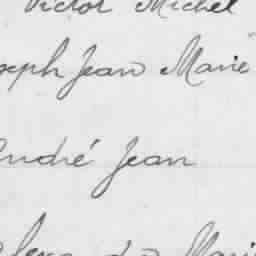 Victor Michel
Joseph Jean Marie
André Jean
Marie